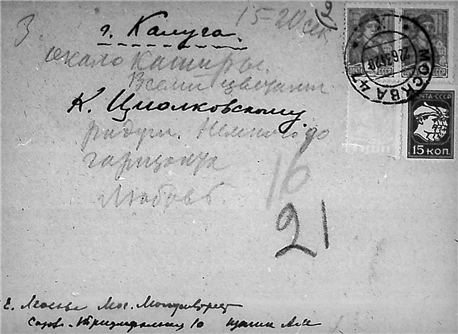 15-20 сек
3
г. Калуга.
около Каширы.
Всеми цветами
К. Циолковскому
радуги. Немного до
горизонта
Любовь
16
21
МОСКВА 47
ПОЧТА СССР
15 КОП.
г. Москва Мос.
10